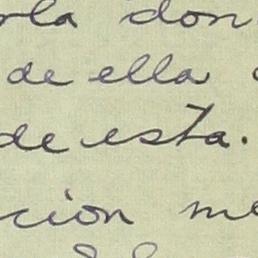 rla don
de ella
de esta.
ción me